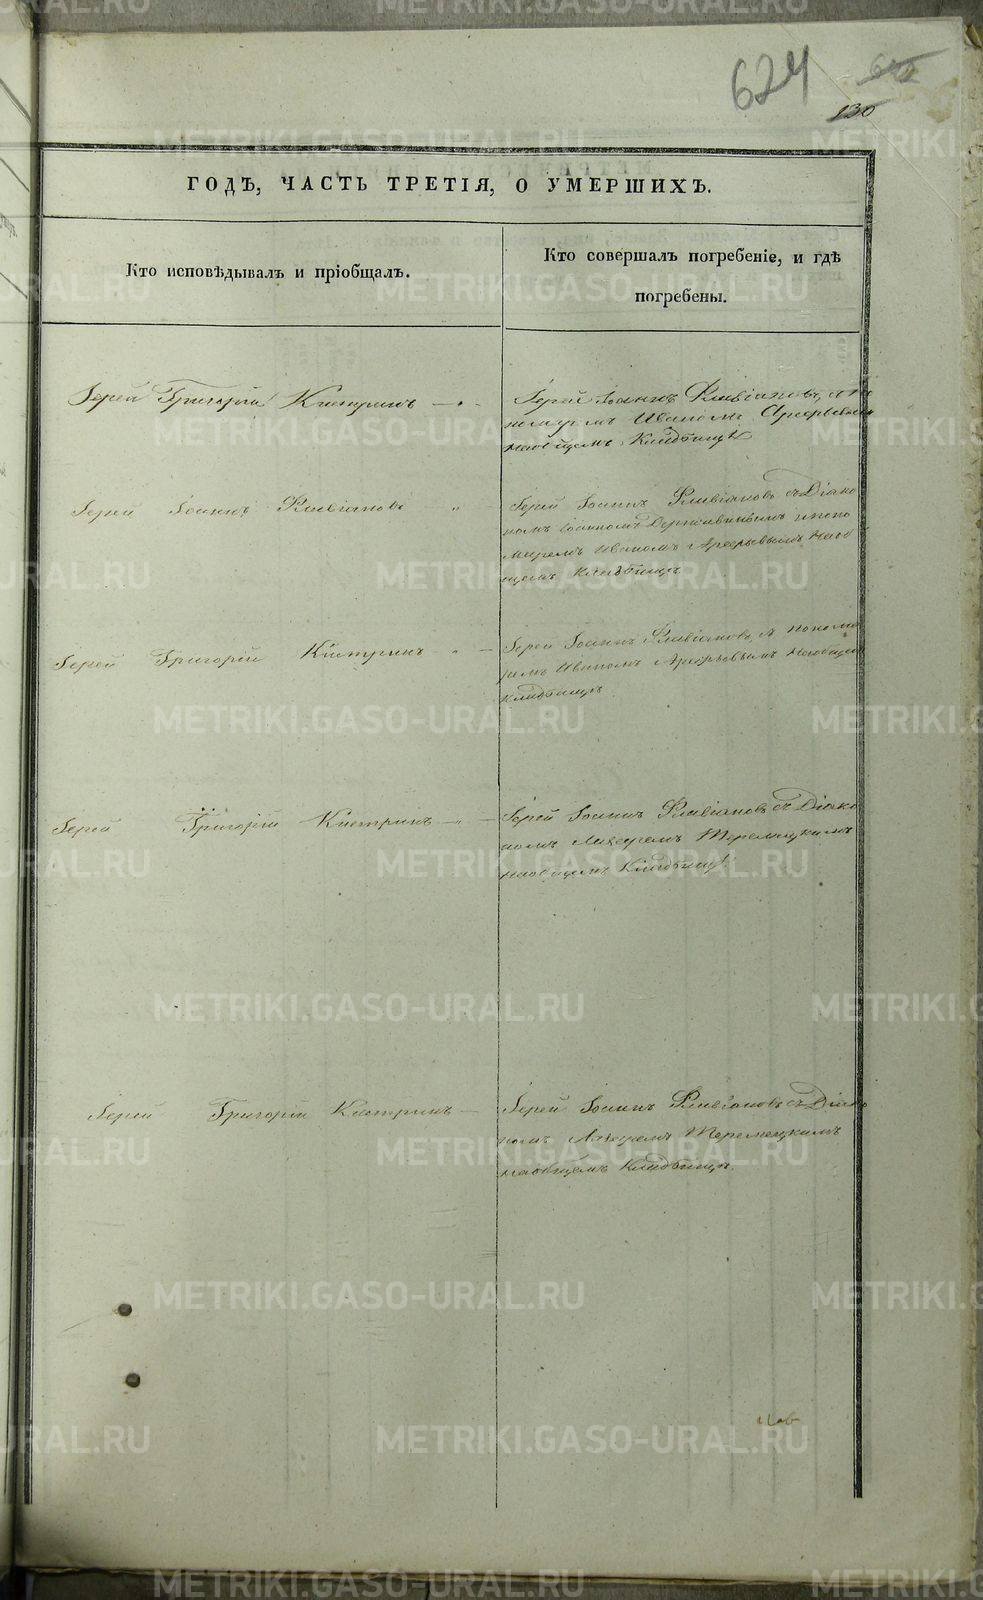 624
130
ГОДЪ, ЧАСТЬ ТРЕТІЯ, О УМЕРШИХЪ.
Кто исповѣдывалъ и пріобщалъ.
Кто совершалъ погребеніе, и гдѣ
погребены.
Іерей Григорій
Іерей Іоаннъ Флавіановъ, с по
номаремъ Иваномъ Арефьевымъ
наобщемъ Кладбищѣ
Іерей Іоаннъ Флавіановъ
Іерей Іоаннъ Флавіановъ съ Діако
номъ Іоанномъ Державинымъ и поно
маремъ Иваномъ Арефьевымъ Наоб
щемъ Кладбищѣ
Іерей Григорій
Іерей Іоаннъ Флавіановъ, с понома
ремъ Иваномъ Арефьевымъ Наобщемъ
Кладбищѣ
Іерей Григорій
Іерей Іоаннъ Флавіановъ съ Діако
номъ
наобщемъ Кладбищѣ
Іерей Григорій
Іерей Іоаннъ Флавіановъ съ Діако
номъ
наобщемъ Кладбищѣ.
METRIKI.GASO-URAL.RU